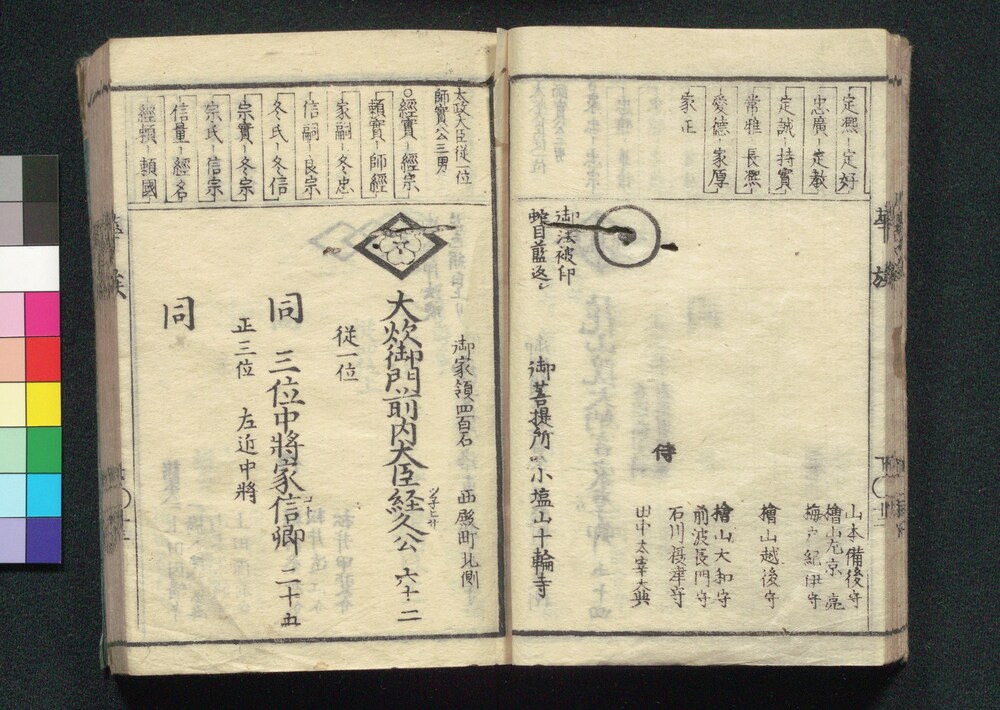 定凞-定好
忠廣-定敎
定誠-持實
常雅-長凞
愛德-家厚
家正
御法被印
蛇目藍返シ
山本備後守
檜山左京亮
梅戸紀伊守
檜山越後守
檜山大和守
前波長門守
石川
田中太宰大典
侍
御菩提所
小塩山十輪寺
華族
太政大臣從一位
師實公三男
○經實-經宗
頼實-師經
家嗣-冬忠
信嗣-良宗
冬氏-冬信
宗實-冬宗
宗氏-信宗
信量-經名
經頼-頼國
御家領四百石
西殿町北側
大炊御門前内大臣経久公 六十二
ツ子ヒサ
從一位
同 三位中將家信卿 二十五
コト
正三位 左近中將
同
華族